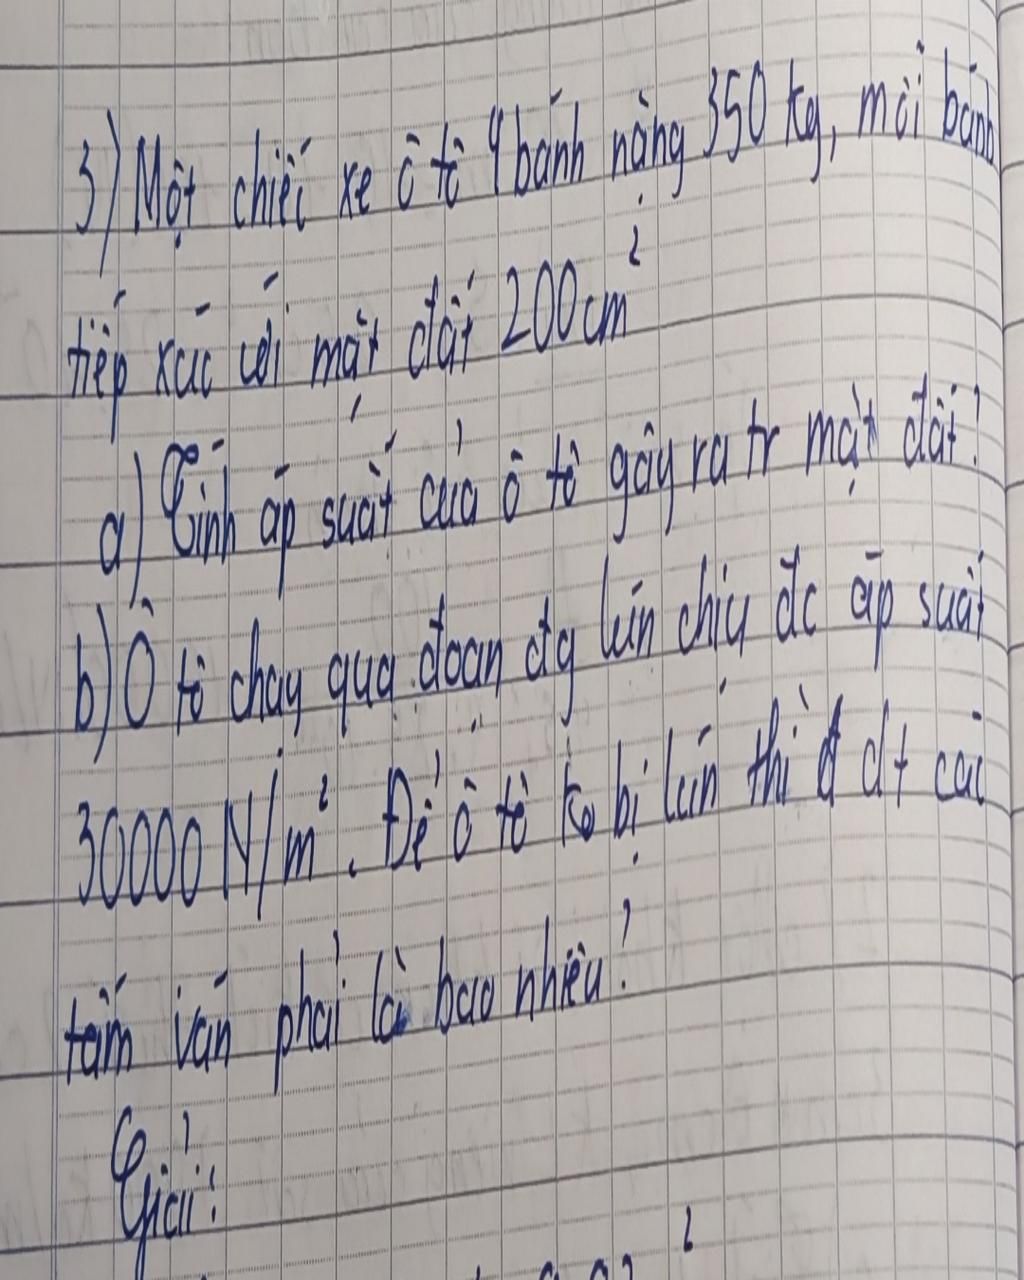 3) Một chiếc xe ô tô 4 bánh nặng 350 kg, mỗi bánh
tiếp xúc với mặt đất 200cm²
a) Tính áp suất của ô tô gây ra tr mặt đất?
b) Ô tô chạy qua đoạn đg lún chịu đc áp suất
30000 N/m². Để ô tô ko bị lún thì dt các
tấm ván phải là bao nhiêu?
Giải: